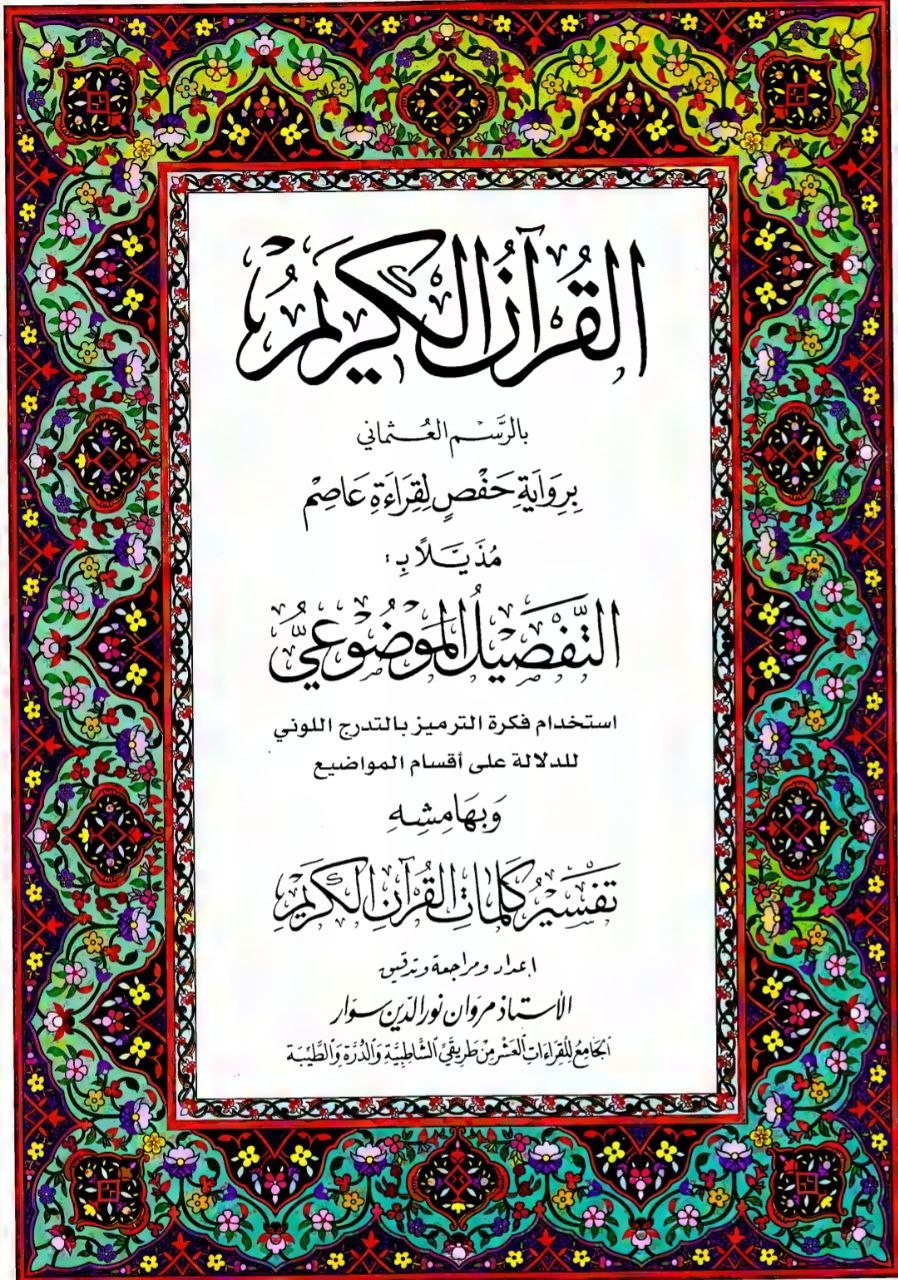 القُرآنُ الكَرِيمُ
بالرَّسْم العُثماني
بِرِوَايَةِ حَفْصٍ لِقِرَاءَةِ عَاصِمْ
مُذَيَّلاً بِ:
التَّفْصِيلُ المَوْضُوعِيُّ
استخدام فكرة الترميز بالتدرج اللوني
للدلالة على أقسام المواضيع
وَبِهَامِشِهِ
تَفْسِيْرُ كَلِمَاتِ القُرآنِ الكَرِيْمِ
إعداد ومراجعة وتدقيق
الأستاذ مروان نور الدّين سوار
الجَامِعُ لِلْقِرَاءَاتِ العَشْرِ مِنْ طَرِيقَيْ الشَّاطِبِيَّةِ وَالدُّرَّةِ وَالطَّيِّبَة